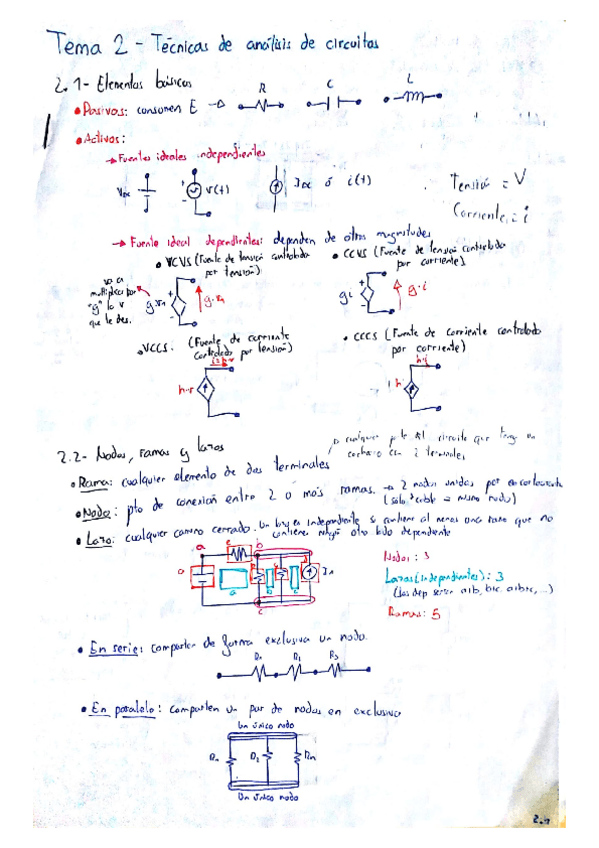 Tema 2 - Técnicas de análisis de circuitos
2.1- Elementos básicos
• Pasivos: consumen E → R C L
• Activos:
→ Fuentes ideales independientes
V_DC v(t) I_DC ó i(t)
Tensión = V
Corriente = i
→ Fuente ideal dependientes: dependen de otras magnitudes
• VCVS (Fuente de tensión controlada
por tensión):
va a
multiplicar por
"g" la V
que le des.
• CCVS (Fuente de tensión controlada
por corriente)
g·i g·i
• VCCS. (Fuente de corriente
controlada por tensión)
h·v
• CCCS (Fuente de corriente controlada
por corriente)
h·i
2.2- Nodos, ramas y lazos
contacto con 2 terminales
• Rama: cualquier elemento de dos terminales
• Nodo: pto de conexión entre 2 o más ramas. → 2 nodos unidos por
(solo cable = mismo nodo)
• Lazo: cualquier camino cerrado. Un lazo es independiente si contiene al menos una rama que no
contiene ningún otro lazo dependiente
a e b
a b c
c
Nodos: 3
Lazos (independientes): 3
Ramas: 5
• En serie: comparten de forma exclusiva un nodo.
R₁ R₂ R₃
• En paralelo: comparten un par de nodos en exclusiva
Un único nodo
R₁ R₂ Rn
Un único nodo
2.1